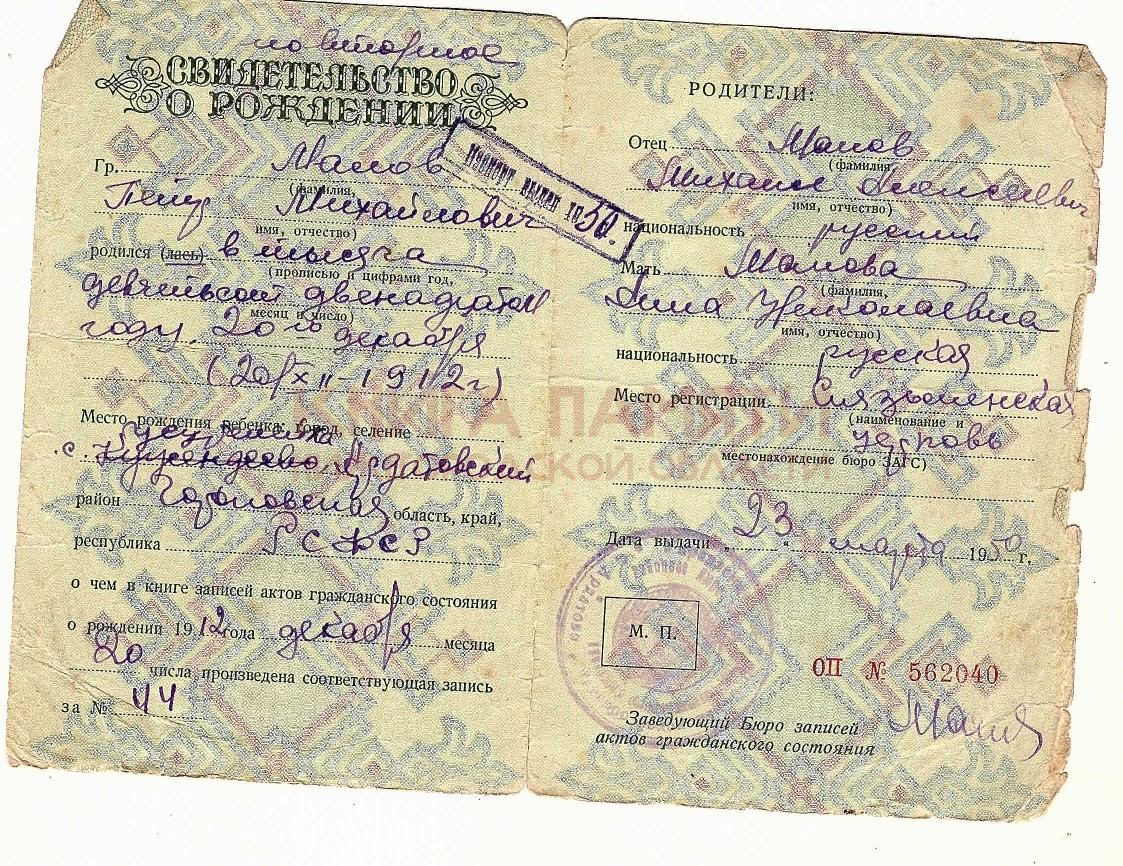 повторное
СВИДЕТЕЛЬСТВО
О РОЖДЕНИИ
Гр. Мамов
(фамилия,
Петр Михайлович
имя, отчество)
родился (лась) в тысяча
(прописью и цифрами год,
девятьсот двенадцатом
месяц и число)
году. 20го декабря
(20/XII-1912 г)
Место рождения ребенка: город, селение
с. Ардатовский
район Горьковская область, край,
республика РСФСР
о чем в книге записей актов гражданского состояния
о рождении 1912 года декабря месяца
20 числа произведена соответствующая запись
за № 44
Паспорт выдан 1950.
РОДИТЕЛИ:
Отец Мамов
(фамилия,
Михаил Алексеевич
имя, отчество)
национальность русский
Мать Мамова
(фамилия,
Анна Николаевна
имя, отчество)
национальность русская
Место регистрации
(наименование и
церковь
местонахождение бюро ЗАГС)
Дата выдачи „23“ марта 1950 г.
М. П.
ОП № 562040
Заведующий Бюро записей
актов гражданского состояния
КНИГА ПАМЯТИ
НИЖЕГОРОДСКОЙ ОБЛАСТИ